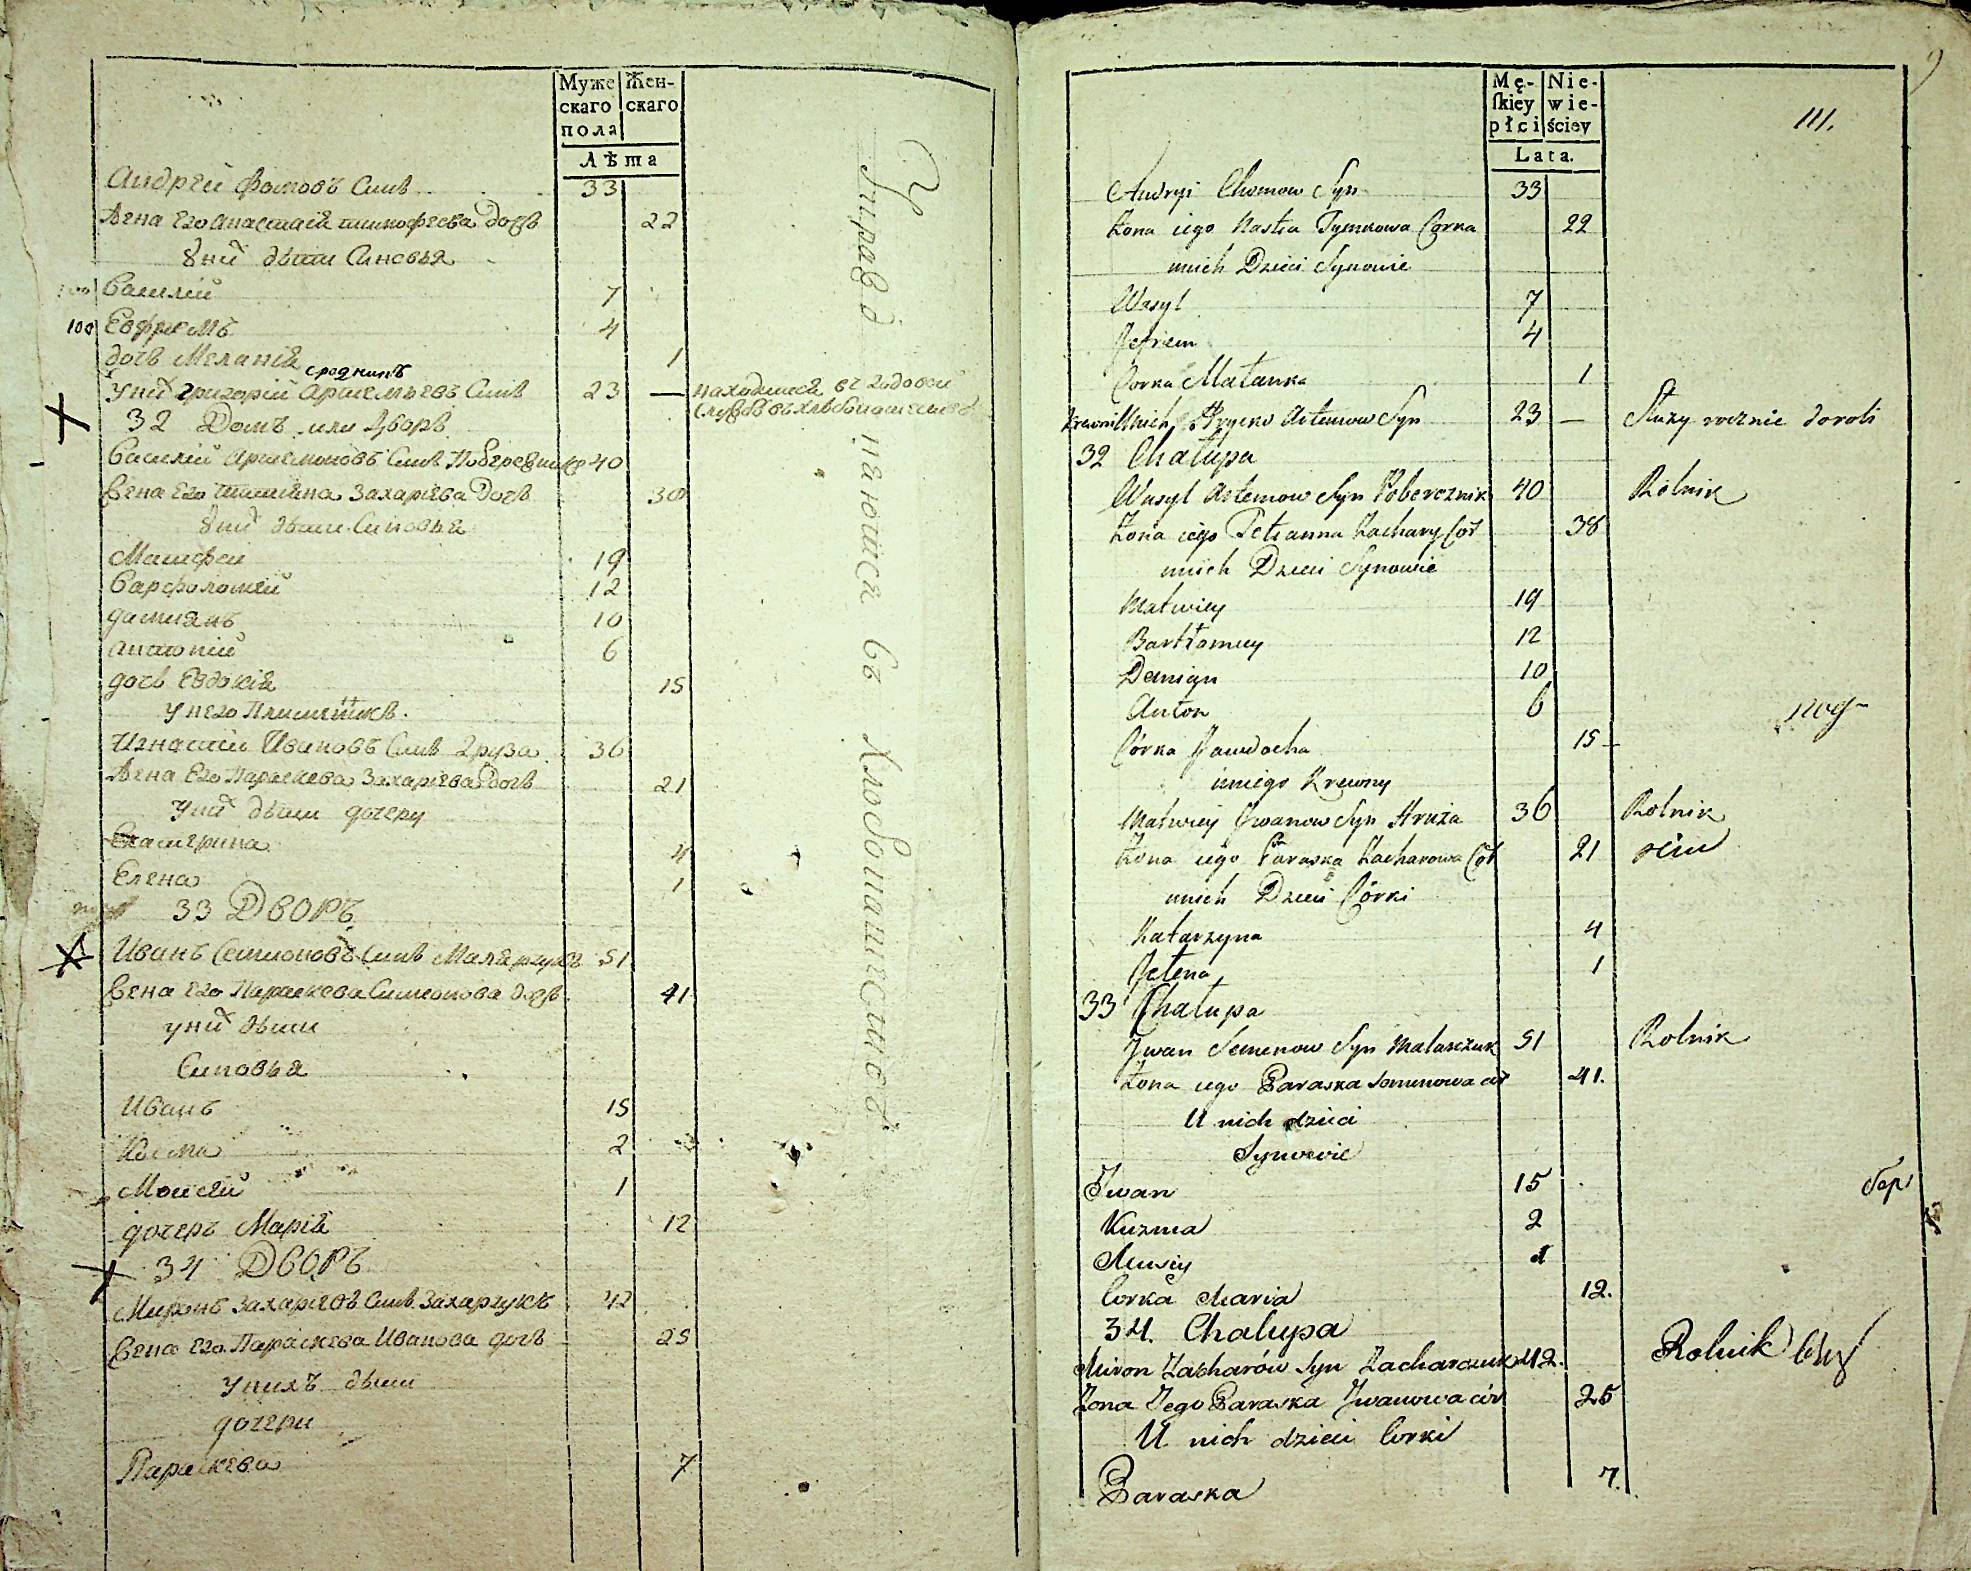 Муже
скаго
пола
Жен-
скаго
Лѣта
Андрей Фомовъ Синъ 33
Жена Его Анастасія тимофеева Дочь 22
У них дѣти Синовья
Василій 7
100 Ефремъ 4
дочь Меланія 1
сродникъ
У них Григорій Артемьевъ Синъ 23 — находится въ годовой
32 Домъ или Дворъ
Василій Артемоновъ Синъ 40
Жена Его Татияна Захарієва Дочь 30
У них дѣти Синовья
Матфеи 19
Варфоломей 12
дамиянъ 10
антоній 6
дочь Евдокія 15
У него
Игнатій Ивановъ Синъ Груза 36
Жена Его Параскева Захарієва дочь 21
У них дѣти дочеры
Екатерина 4
Елена 1
33 Дворъ
Иванъ Семионовъ Синъ Малярчукъ 51
Жена Его Параскева Симеонова дочь 41
у них дѣти
Синовья
Иванъ 15
Козма 2
Моисей 1
дочерь Марія 12
34 Дворъ
Миронъ Захарієвъ Синъ Захарчукъ 42
Жена Его Параскева Иванова дочь 25
У нихъ дѣти
дочери
Параскева 7
въ
9
Mę-
ſkiey
płci
Nie-
wie-
ściey
Lata.
111.
Andryi Chomow Syn 33
Żona iego Nastia Tymkowa Corka 22
unich Dzieci Synowie
Wasyl 7
Jefrem 4
Corka Małanka 1
Krewni Unich Hryćko Artemow Syn 23 — Służy rocznie doroli
32 Chałupa
Wasyl Artemow Syn Pobereznik 40 Rolnik
Żona iego Tetianna Zachary Cór 38
unich Dzieci Synowie
Matwiey 19
Bartłomiey 12
Demian 10
Anton 6
Córka Jawdocha 15
uniego Krewny
Matwiey Jwanow Syn Hruza 36 Rolnik
Żona iego Paraska Zacharowa Cór 21
unich Dzieci Córki
Katarzyna 4
Jełena 1
33 Chałupa
Jwan Semenow Syn Malarczuk 51 Rolnik
Żona iego Paraska Semenowa cór 41.
U nich dzieci
Synowie
Jwan 15
Kuzma 2
Musiy 1
Corka Maria 12.
34. Chalupa
Miron Zacharów Syn Zacharczuk 42. Rolnik
Żona Jego Paraska Jwanowa cór 25
U nich dzieci Corki
Paraska 7.